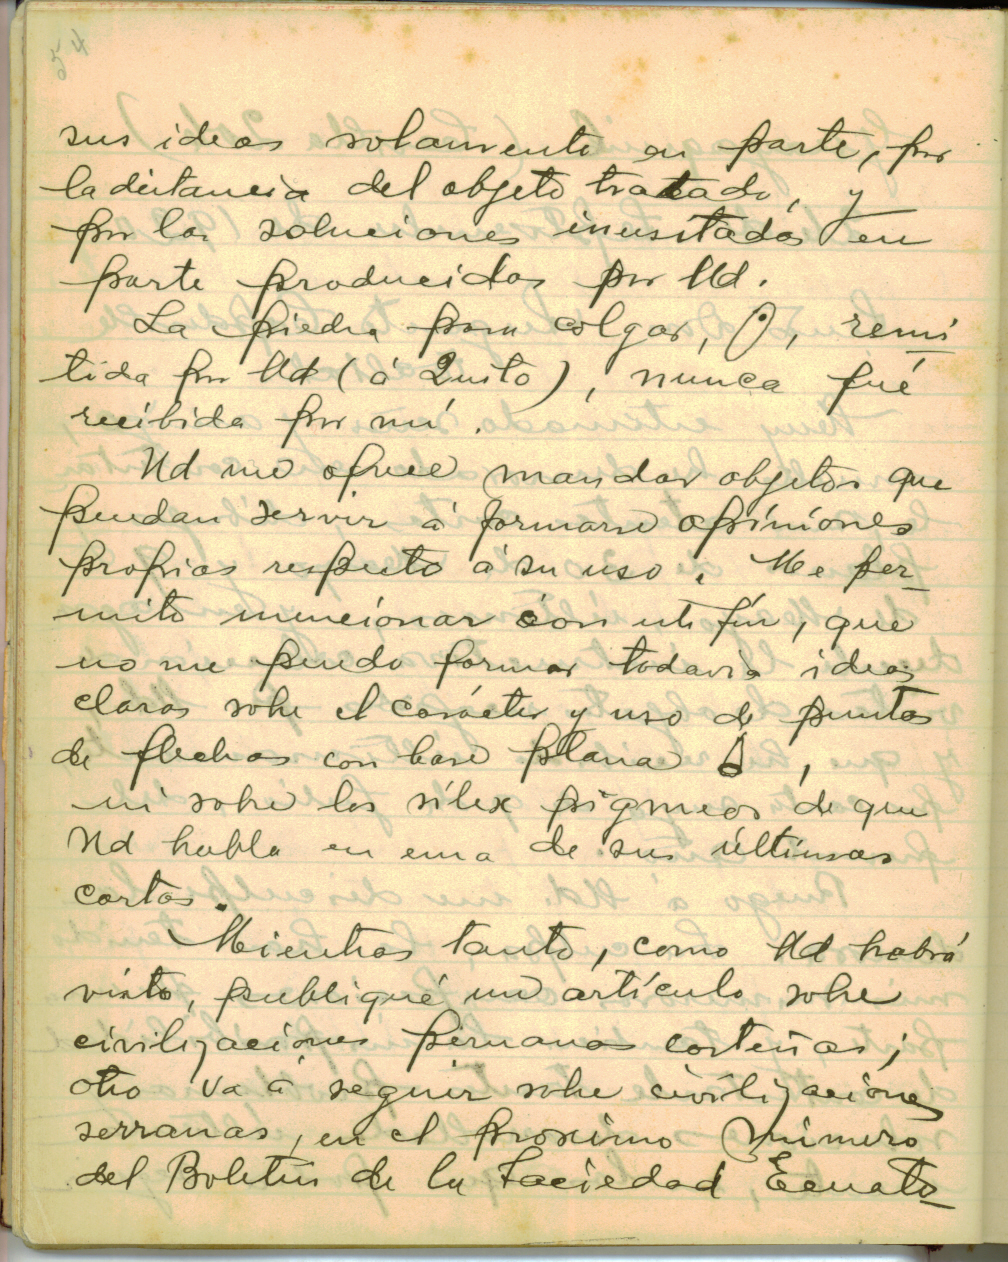 54
sus ideas solamente en parte, por
la distancia del objeto tratado, y
por las soluciones inusitadas en
parte producidas por Ud.
La piedra para colgar, remi
tida por Ud (á Quito), nunca fué
recibida por mí.
Ud me ofrece mandar objetos que
puedan servir á formarse opiniones
propias respecto á su uso. Me per-
mito mencionar con este fín, que
no me puedo formar todavia ideas
claras sobre el carácter y uso de puntas
de flechas con base plana,
ni sobre los sílex pigmeos de que
Ud habla en una de sus últimas
cartas.
Mientras tanto, como Ud habrá
visto, publiqué un artículo sobre
civilizaciones peruanas costeñas;
otro va á seguir sobre civilizaciones
serranas, en el proximo número
del Boletín de la Sociedad Ecuato-